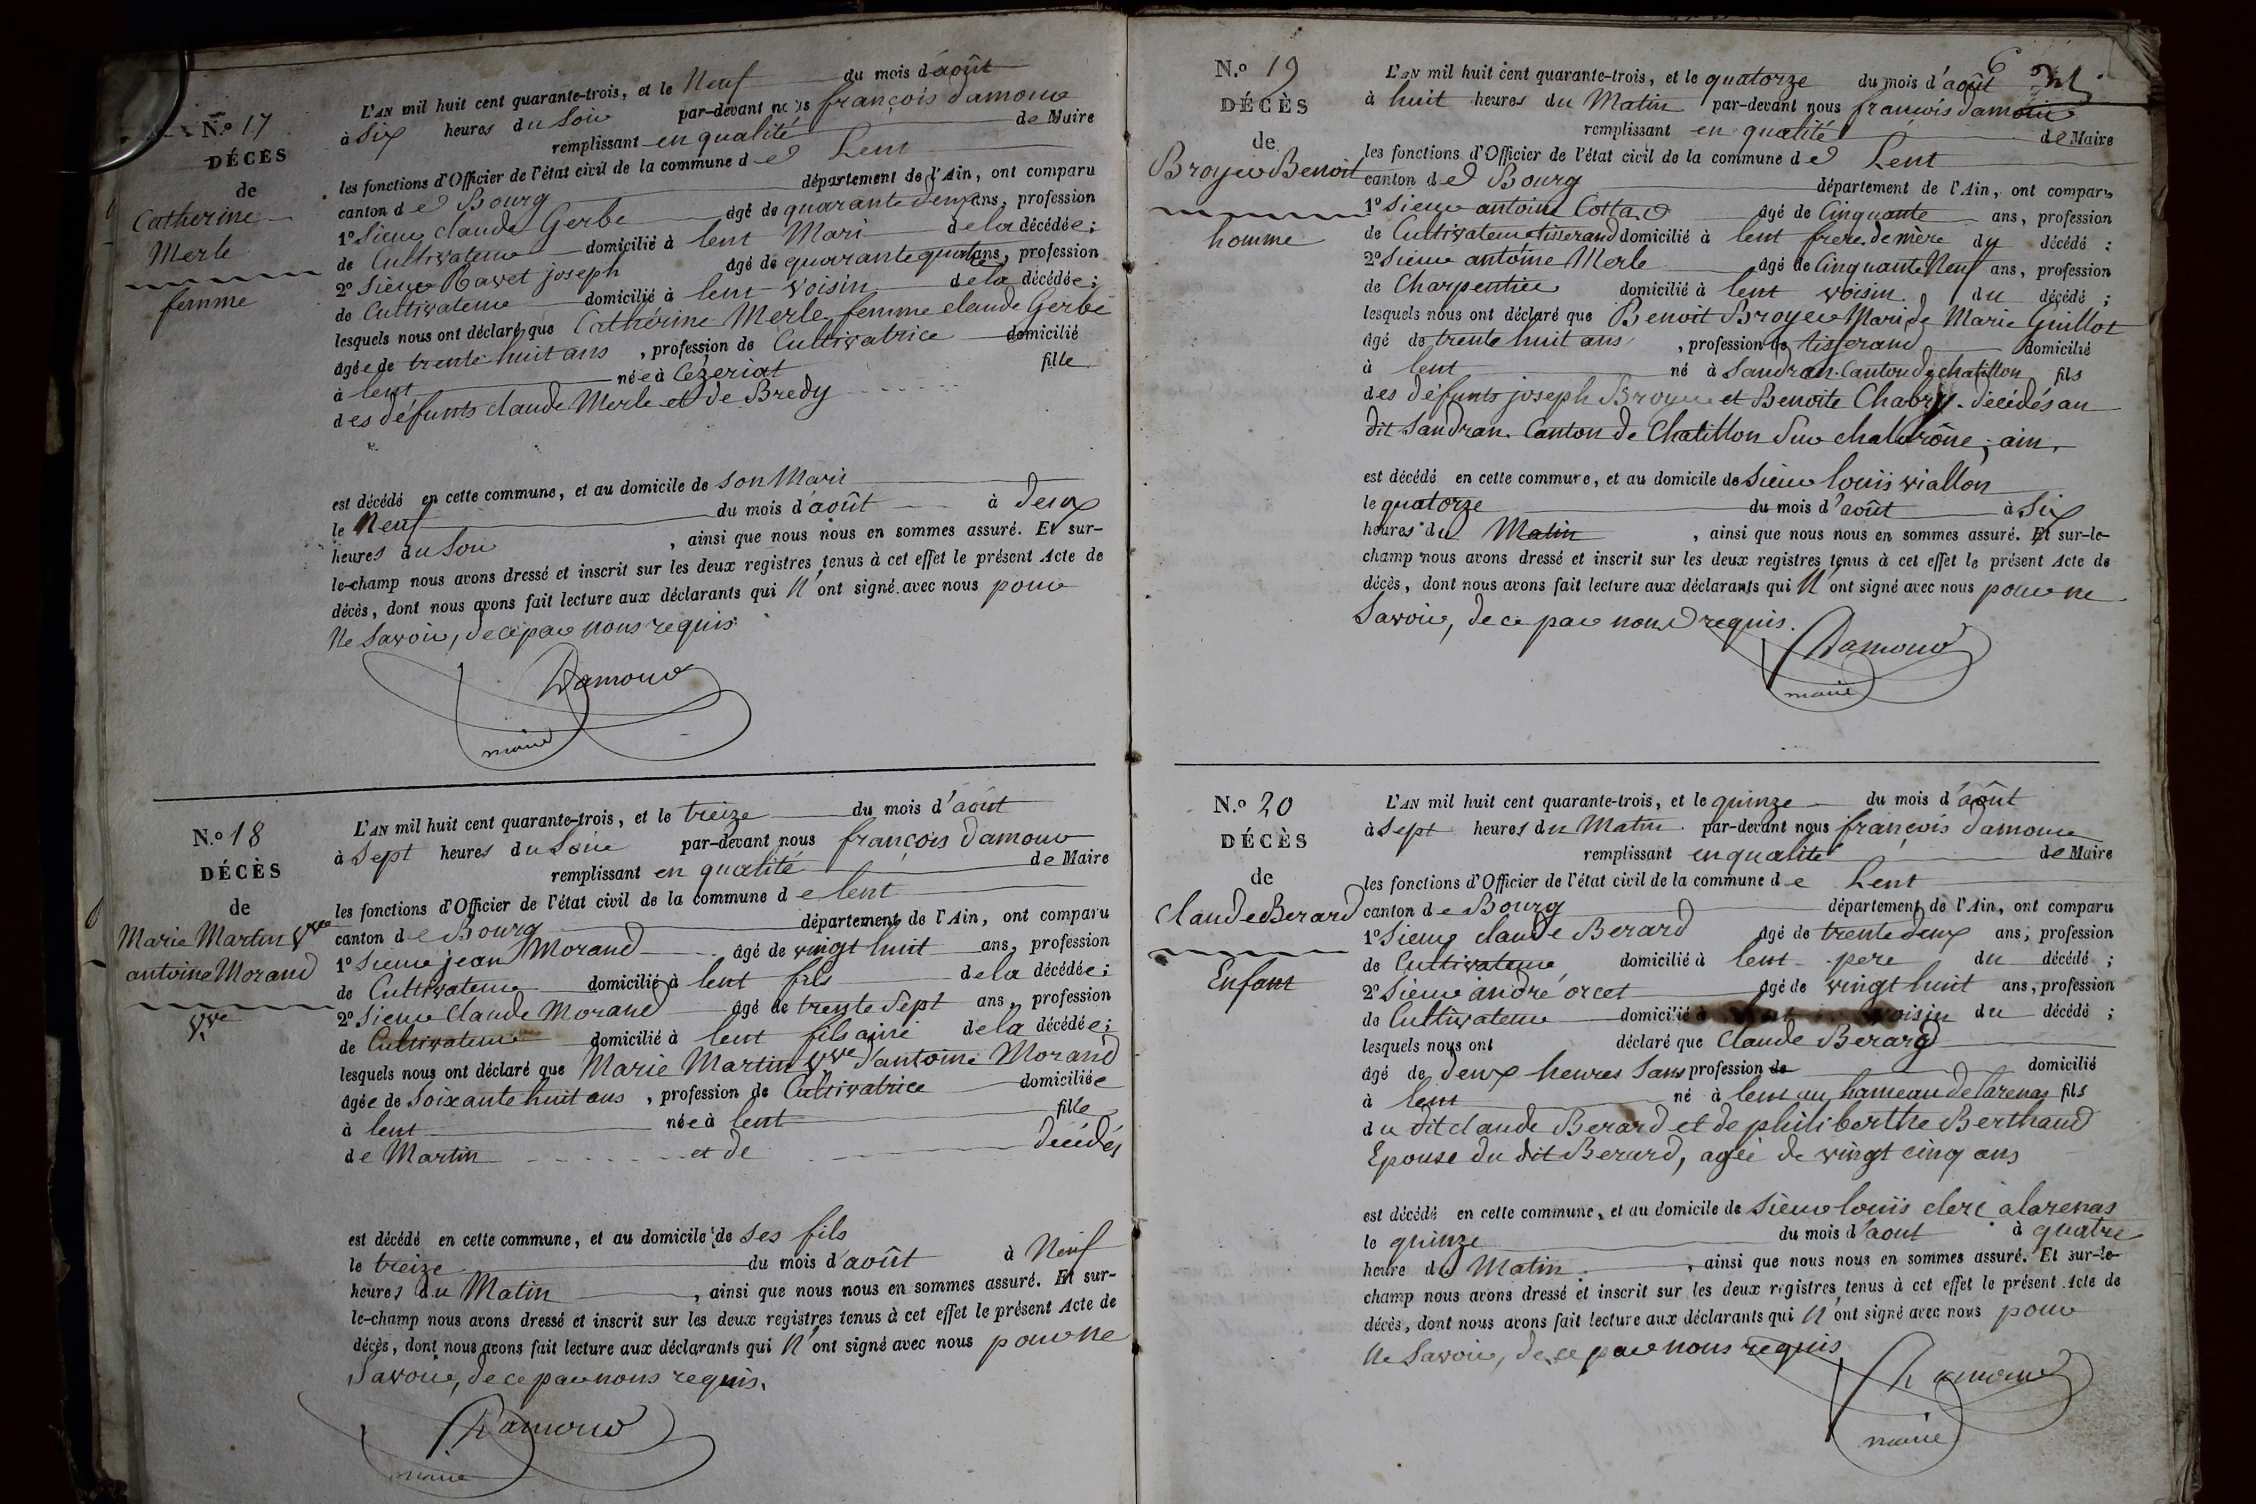 N.º 17
DÉCÈS
de
Catherine
Merle
femme
L'AN mil huit cent quarante-trois, et le Neuf du mois d'août
à Six heures du Soir par-devant nous françois damour
remplissant en qualité de Maire
les fonctions d'Officier de l'état civil de la commune de Lent
canton de Bourg département de l'Ain, ont comparu
1º Sieur claude Gerbe âgé de quarante deux ans, profession
de Cultivateur domicilié à lent Mari de la décédée;
2º Sieur Ravet joseph âgé de quarante quatre ans, profession
de Cultivateur domicilié à lent voisin de la décédée;
lesquels nous ont déclaré que Catherine Merle femme claude Gerbe
âgée de trente huit ans, profession de Cultivatrice domicilié
à lent née à Cézeriat fille
des défunts claude Merle et de Bredy
est décédé en cette commune, et au domicile de son Mari
le Neuf du mois d'août à deux
heures du Soir, ainsi que nous nous en sommes assuré. Et sur-
le-champ nous avons dressé et inscrit sur les deux registres tenus à cet effet le présent Acte de
décès, dont nous avons fait lecture aux déclarants qui N'ont signé avec nous pour
Ne Savoir, de ce par nous requis.
Damour
maire
N.º 18
DÉCÈS
de
Marie Martin Vve
antoine Morand
Vve
L'AN mil huit cent quarante-trois, et le treize du mois d'août
à Sept heures du Soir par-devant nous françois damour
remplissant en qualité de Maire
les fonctions d'Officier de l'état civil de la commune de lent
canton de Bourg département de l'Ain, ont comparu
1º Sieur jean Morand âgé de vingt huit ans, profession
de Cultivateur domicilié à lent fils de la décédée;
2º Sieur Claude Morand âgé de trente Sept ans, profession
de Cultivateur domicilié à lent fils ainé de la décédée;
lesquels nous ont déclaré que Marie Martin Vve d'antoine Morand
âgée de Soixante huit ans, profession de Cultivatrice domiciliée
à lent née à lent fille
de Martin et de décédés
est décédé en cette commune, et au domicile de ses fils
le treize du mois d'août à Neuf
heures du Matin, ainsi que nous nous en sommes assuré. Et sur-
le-champ nous avons dressé et inscrit sur les deux registres tenus à cet effet le présent Acte de
décès, dont nous avons fait lecture aux déclarants qui N'ont signé avec nous pour ne
Savoir, de ce par nous requis.
Damour
maire
6
N.º 19
DÉCÈS
de
Broyer Benoit
homme
L'AN mil huit cent quarante-trois, et le quatorze du mois d'août
à huit heures du Matin par-devant nous françois damour
remplissant en qualité de Maire
les fonctions d'Officier de l'état civil de la commune de Lent
canton de Bourg département de l'Ain, ont comparu
1º Sieur antoine Cottard âgé de Cinquante ans, profession
de Cultivateur tisserand domicilié à lent frere de mère du décédé;
2º Sieur antoine Merle âgé de Cinquante Neuf ans, profession
de Charpentier domicilié à lent voisin du décédé;
lesquels nous ont déclaré que Benoit Broyer Mari de Marie Guillot
âgé de trente huit ans, profession de tisserand domicilié
à lent né à Sandran. Canton de chatillon fils
des défunts joseph Broyer et Benoite Chabry. décédés au
dit Sandran. Canton de Chatillon Sur chalarône, ain.
est décédé en cette commune, et au domicile de Sieur louis viallon
le quatorze du mois d'août à Six
heures du Matin, ainsi que nous nous en sommes assuré. Et sur-le-
champ nous avons dressé et inscrit sur les deux registres tenus à cet effet le présent Acte de
décès, dont nous avons fait lecture aux déclarants qui N'ont signé avec nous pour ne
Savoir, de ce par nous requis.
Damour
maire
N.º 20
DÉCÈS
de
Claude Berard
Enfant
L'AN mil huit cent quarante-trois, et le quinze du mois d'août
à Sept heures du Matin par-devant nous françois damour
remplissant en qualité de Maire
les fonctions d'Officier de l'état civil de la commune de Lent
canton de Bourg département de l'Ain, ont comparu
1º Sieur claude Berard âgé de trente deux ans, profession
de Cultivateur domicilié à lent pere du décédé;
2º Sieur andré orcet âgé de vingt huit ans, profession
de Cultivateur domicilié à voisin du décédé;
lesquels nous ont déclaré que Claude Berard
âgé de deux heures Sans profession de domicilié
à lent né à lent au hameau de larenas fils
du dit claude Berard et de philiberthe Berthaud
Epouse du dit Berard, agée de vingt cinq ans
est décédé en cette commune, et au domicile de Sieur louis clerc a larenas
le quinze du mois d'aout à quatre
heure du Matin, ainsi que nous nous en sommes assuré. Et sur-le-
champ nous avons dressé et inscrit sur les deux registres tenus à cet effet le présent Acte de
décès, dont nous avons fait lecture aux déclarants qui N'ont signé avec nous pour
Ne Savoir, de ce par nous requis
Damour
maire